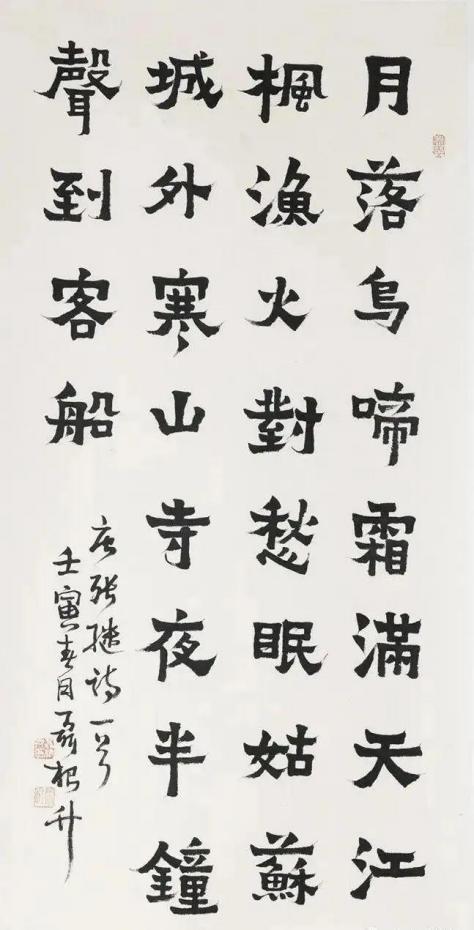 月落烏啼霜滿天江
楓漁火對愁眠姑蘇
城外寒山寺夜半鐘
聲到客船
唐張繼詩一首
壬寅春月聶根升